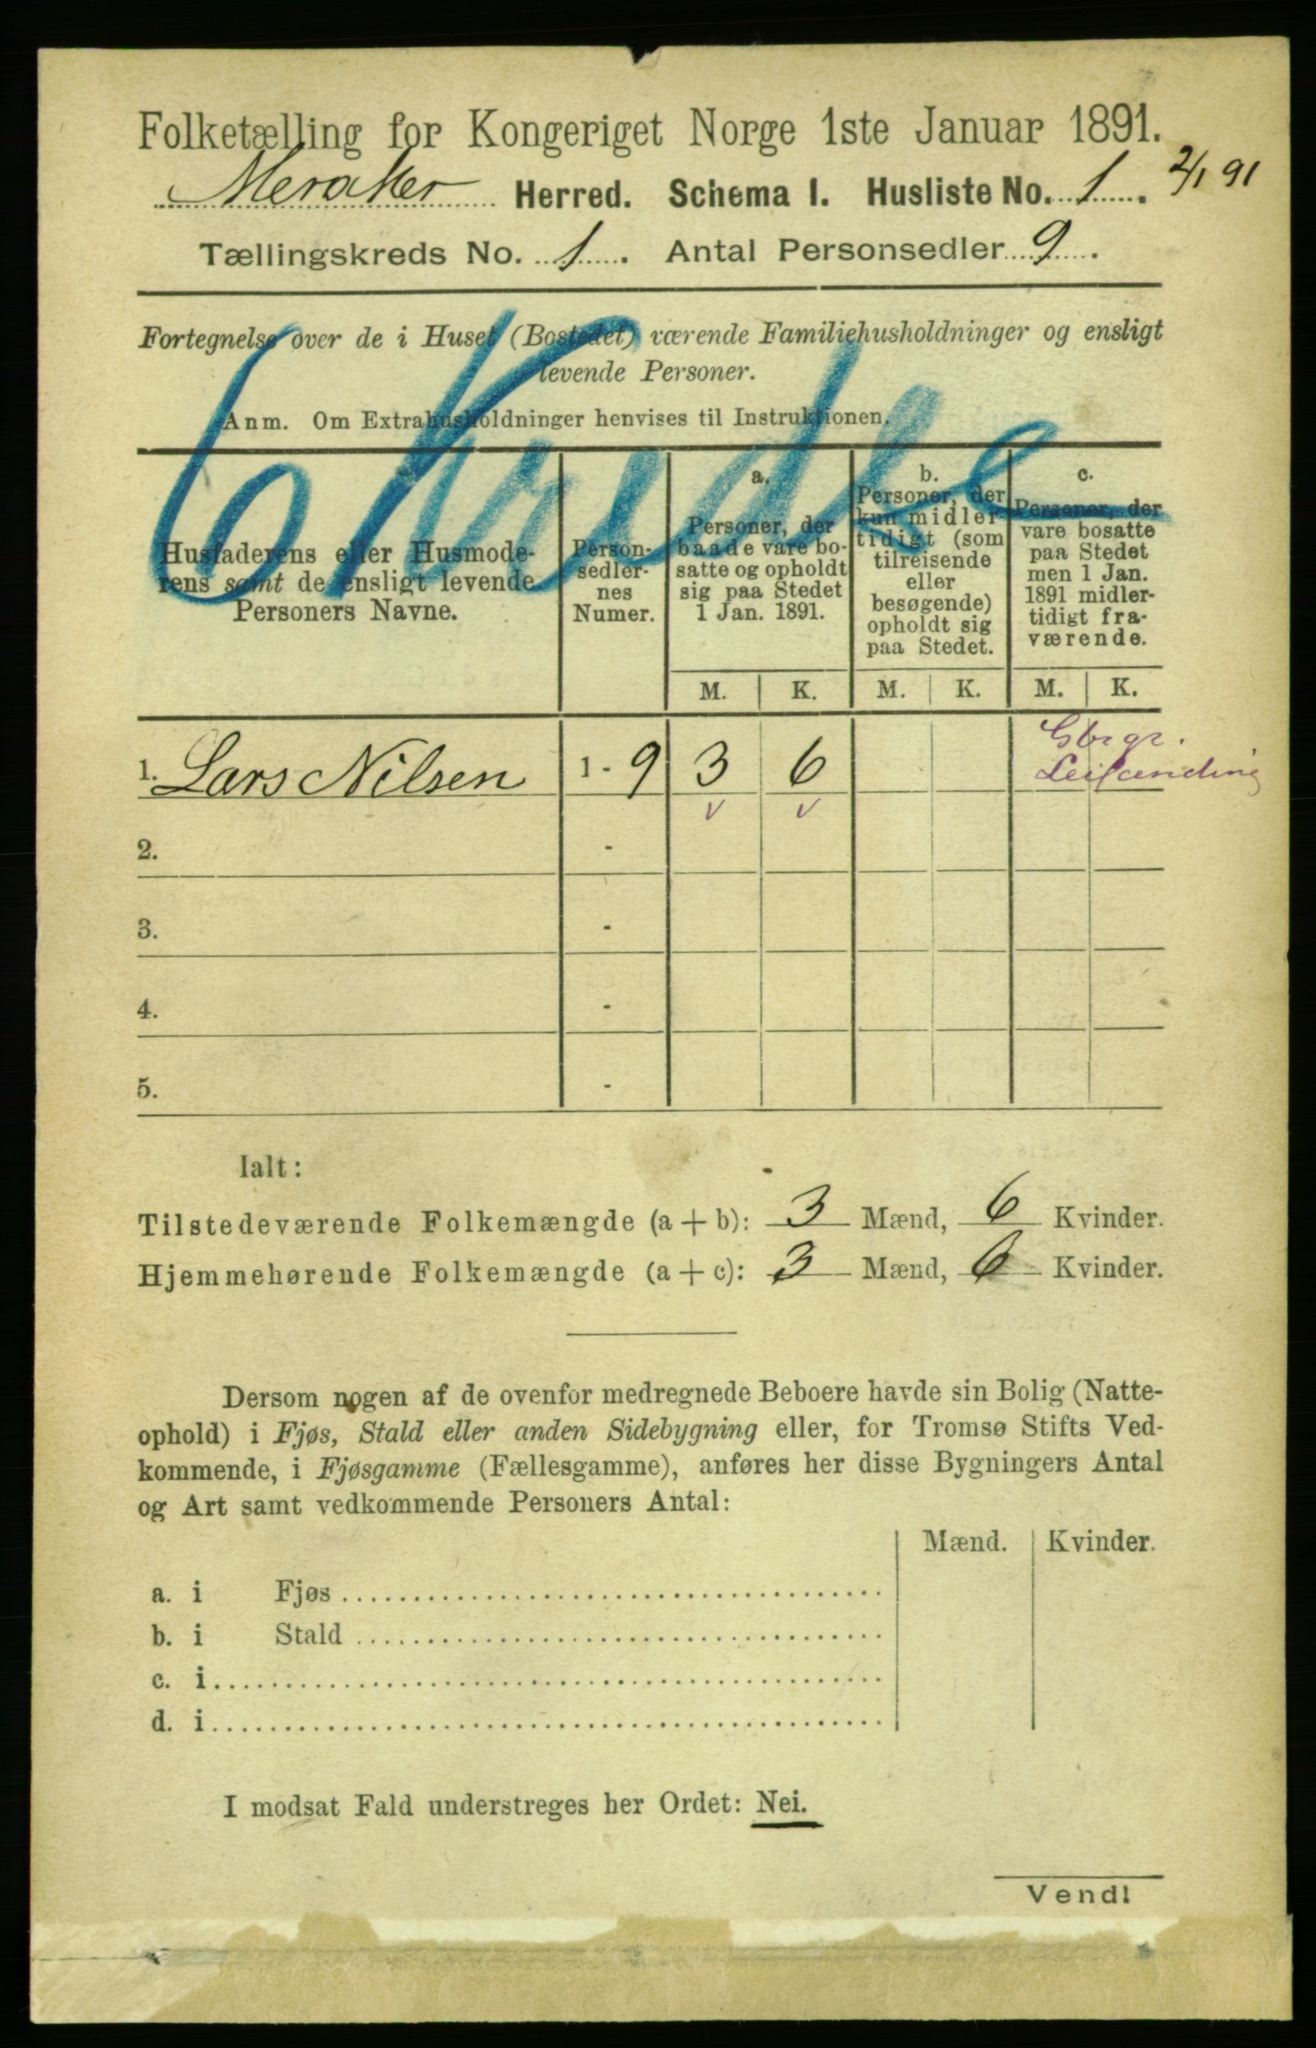 Folketælling for Kongeriget Norge 1ste Januar 1891.
Meraker Herred. Schema I. Husliste No. 1. 2/1 91
Tællingskreds No. 1. Antal Personsedler 9.
Fortegnelse over de i Huset (Bostedet) værende Familiehusholdninger og ensligt
levende Personer.
Anm. Om Extrahusholdninger henvises til Instruktionen.
6 Kredse
Husfaderens eller Husmode-
rens samt de ensligt levende
Personers Navne.
Person-
sedler-
nes
Numer.
a.
Personer, der
baade vare bo-
satte og opholdt
sig paa Stedet
1 Jan. 1891.
b.
Personer, der
kun midler-
tidigt (som
tilreisende
eller
besøgende)
opholdt sig
paa Stedet.
c.
Personer, der
vare bosatte
paa Stedet
men 1 Jan.
1891 midler-
tidigt fra-
værende.
M. K. M. K. M. K.
Gbrgr.
1. Lars Nilsen 1 - 9 3 6 Leilænding
v v
2. -
3. -
4. -
5. -
Ialt:
Tilstedeværende Folkemængde (a + b): 3 Mænd, 6 Kvinder.
Hjemmehørende Folkemængde (a + c): 3 Mænd, 6 Kvinder.
Dersom nogen af de ovenfor medregnede Beboere havde sin Bolig (Natte-
ophold) i Fjøs, Stald eller anden Sidebygning eller, for Tromsø Stifts Ved-
kommende, i Fjøsgamme (Fællesgamme), anføres her disse Bygningers Antal
og Art samt vedkommende Personers Antal:
Mænd. Kvinder.
a. i Fjøs
b. i Stald
c. i
d. i
I modsat Fald understreges her Ordet: Nei.
Vend!